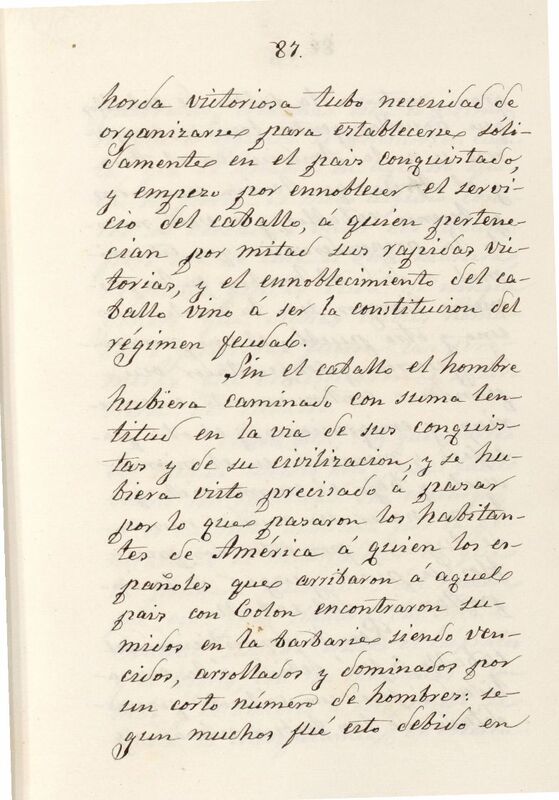 87.
horda victoriosa tubo necesidad de
organizarse para establecerse sóli-
damente en el pais conquistado,
y empezo por ennoblecer el servi-
cio del caballo, á quien pertene-
cian por mitad sus rapidas vic-
torias, y el ennoblecimiento del ca-
ballo vino á ser la constitucion del
régimen feudal.
Sin el caballo el hombre
hubiera caminado con suma len-
titud en la via de sus conquis-
tas y de su civilizacion, y se hu-
biera visto precisado á pasar
por lo que pasaron los habitan-
tes de América á quien los es-
pañoles que arribaron á aquel
pais con Colon encontraron su-
midos en la barbarie siendo ven-
cidos, arrollados y dominados por
un corto número de hombres: se-
gun muchos fué esto debido en